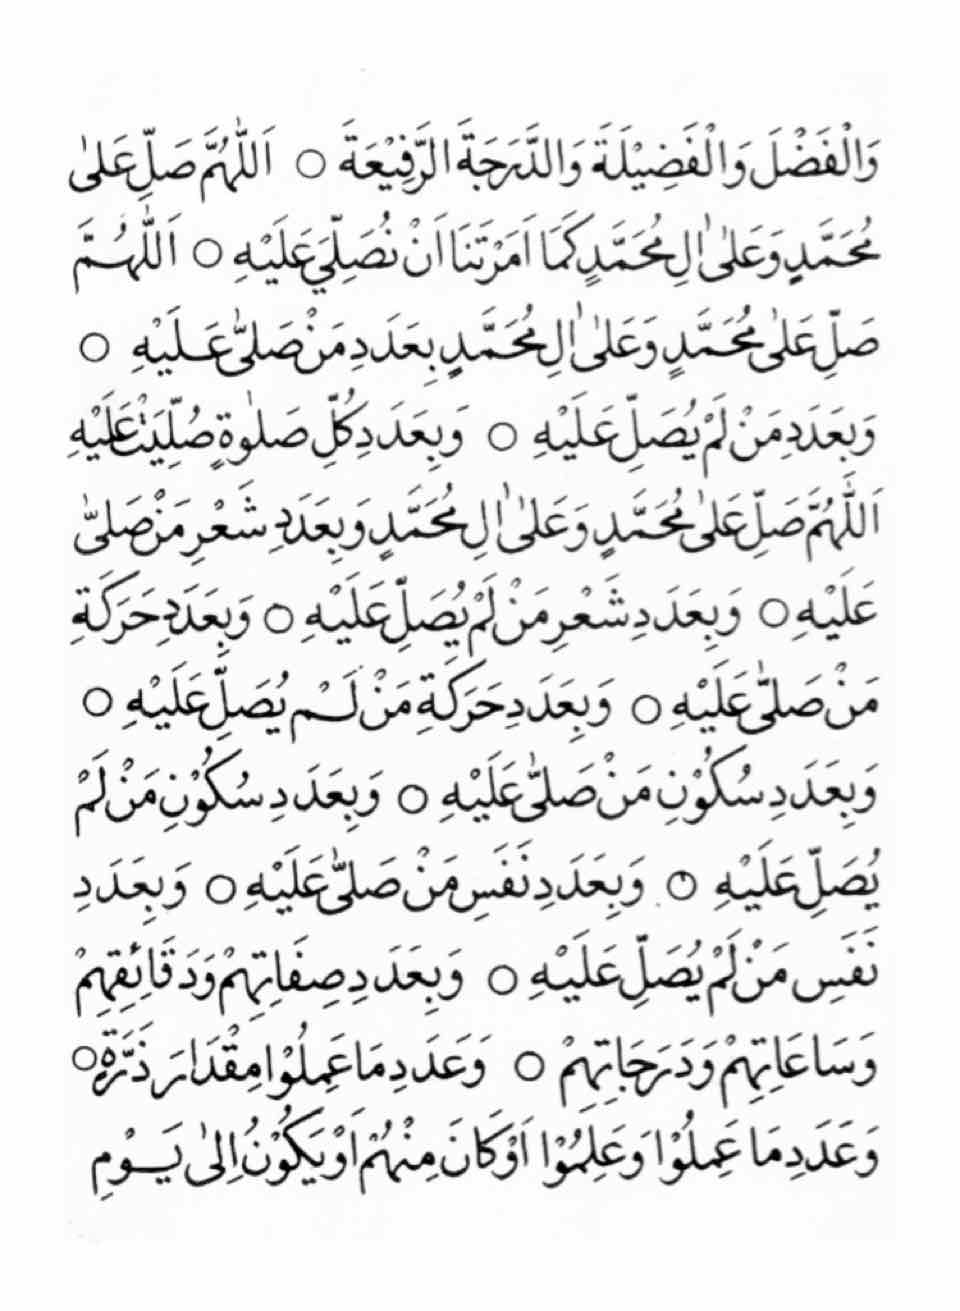 وَالْفَضْلَ وَالْفَضِيْلَةَ وَالدَّرَجَةَ الرَّفِيْعَةَ ○ اَللّٰهُمَّ صَلِّ عَلٰى
مُحَمَّدٍ وَعَلٰى اٰلِ مُحَمَّدٍ كَمَا اَمَرْتَنَا اَنْ نُصَلِّيَ عَلَيْهِ ○ اَللّٰهُمَّ
صَلِّ عَلٰى مُحَمَّدٍ وَعَلٰى اٰلِ مُحَمَّدٍ بِعَدَدِ مَنْ صَلّٰى عَلَيْهِ ○
وَبِعَدَدِ مَنْ لَمْ يُصَلِّ عَلَيْهِ ○ وَبِعَدَدِ كُلِّ صَلٰوةٍ صُلِّيَتْ عَلَيْهِ
اَللّٰهُمَّ صَلِّ عَلٰى مُحَمَّدٍ وَعَلٰى اٰلِ مُحَمَّدٍ وَبِعَدَدِ شَعْرِ مَنْ صَلّٰى
عَلَيْهِ ○ وَبِعَدَدِ شَعْرِ مَنْ لَمْ يُصَلِّ عَلَيْهِ ○ وَبِعَدَدِ حَرَكَةِ
مَنْ صَلّٰى عَلَيْهِ ○ وَبِعَدَدِ حَرَكَةِ مَنْ لَمْ يُصَلِّ عَلَيْهِ ○
وَبِعَدَدِ سُكُوْنِ مَنْ صَلّٰى عَلَيْهِ ○ وَبِعَدَدِ سُكُوْنِ مَنْ لَمْ
يُصَلِّ عَلَيْهِ ○ وَبِعَدَدِ نَفَسِ مَنْ صَلّٰى عَلَيْهِ ○ وَبِعَدَدِ
نَفَسِ مَنْ لَمْ يُصَلِّ عَلَيْهِ ○ وَبِعَدَدِ صِفَاتِهِمْ وَدَقَائِقِهِمْ
وَسَاعَاتِهِمْ وَدَرَجَاتِهِمْ ○ وَعَدَدِ مَا عَمِلُوْا مِقْدَارَ ذَرَّةٍ ○
وَعَدَدِ مَا عَمِلُوْا وَعَلِمُوْا اَوْ كَانَ مِنْهُمْ اَوْ يَكُوْنُ اِلٰى يَوْمِ